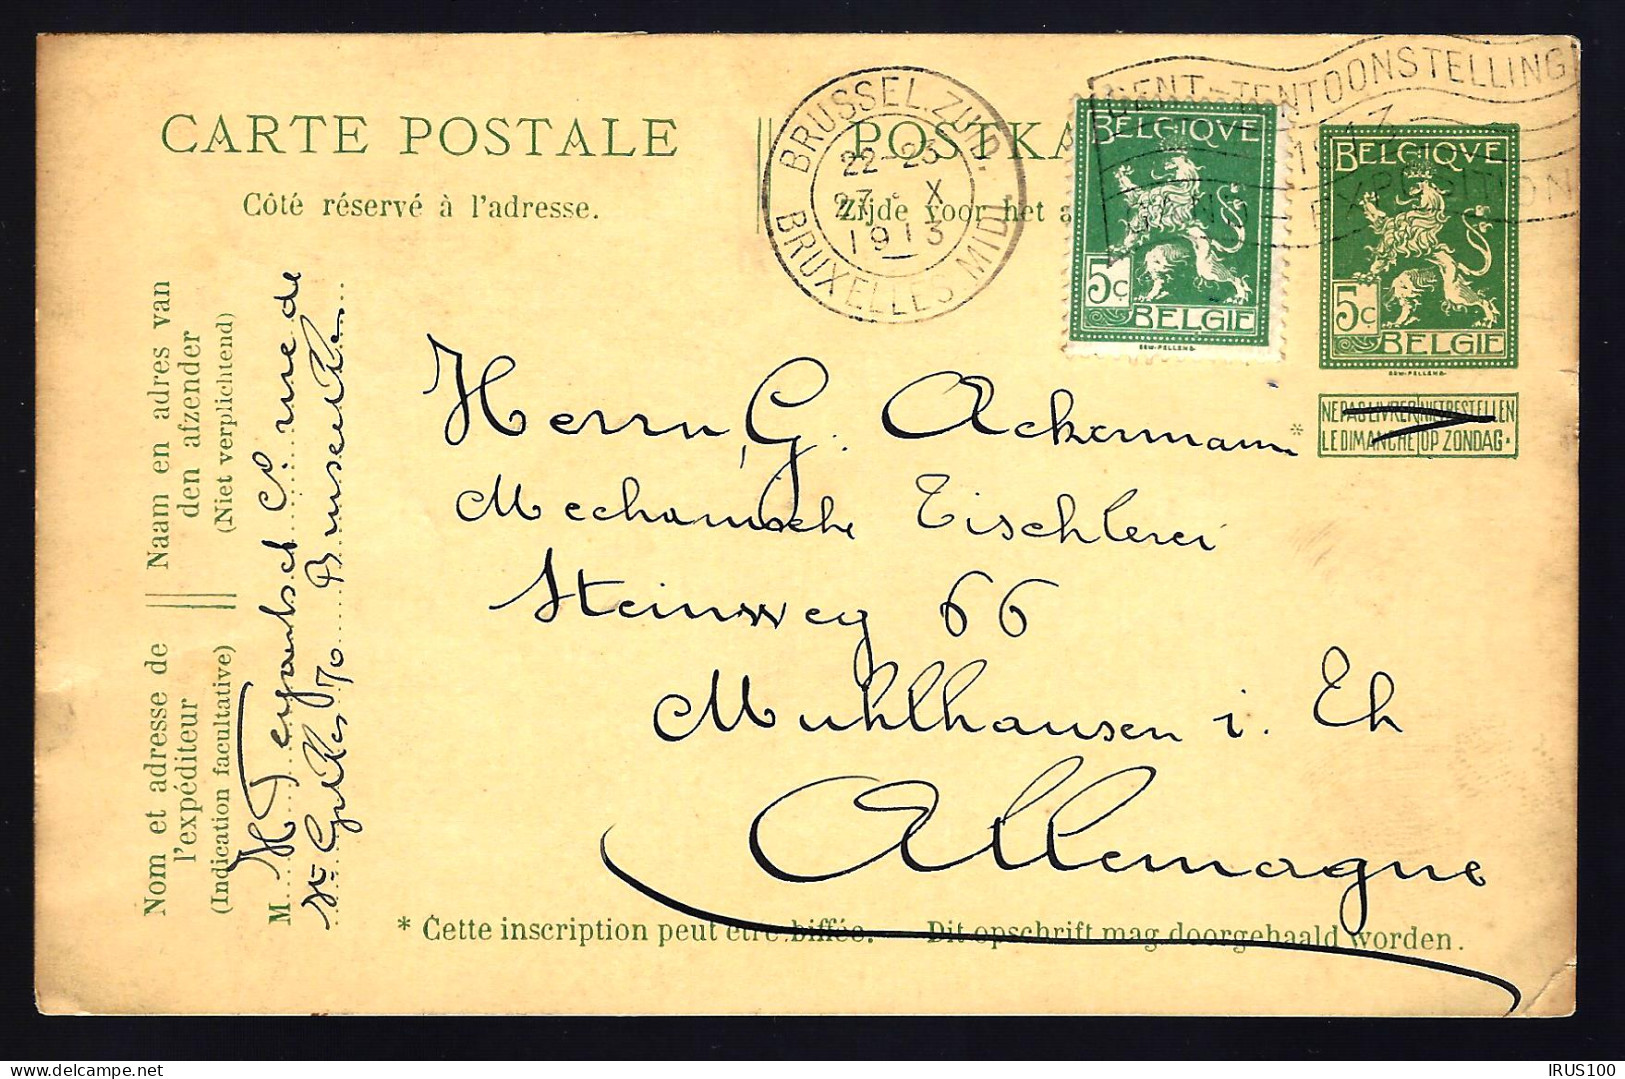 CARTE POSTALE
Côté réservé à l'adresse.
POSTKA
Zijde voor het a
BRUSSEL.ZUID.
22-23
27 · X
1913
BRUXELLES MIDI
GENT-TENTOONSTELLING
1913
GAND-EXPOSITION
BELGIQVE
5c
BELGIE
BELGIQVE
5c
BELGIE
NE PAS LIVRER NIET BESTELLEN
LE DIMANCHE OP ZONDAG.
Herrn G. Ackermann *
Mechanische Tischlerei
Steinweg 66
Muhlhausen i. Eh
Allemagne
Naam en adres van
den afzender
(Niet verplichtend)
Nom et adresse de
l'expéditeur
(Indication facultative)
M.
70
* Cette inscription peut être biffée. — Dit opschrift mag doorgehaald worden.
delcampe.net
IRUS100